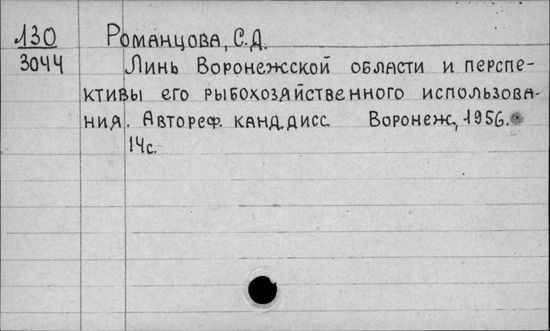 130 Романцова, С.Д.
3044 Линь Воронежской области и перспе-
ктивы его рыбохозяйственного использова-
ния. Автореф. канд. дисс. Воронеж, 1956.
14с.